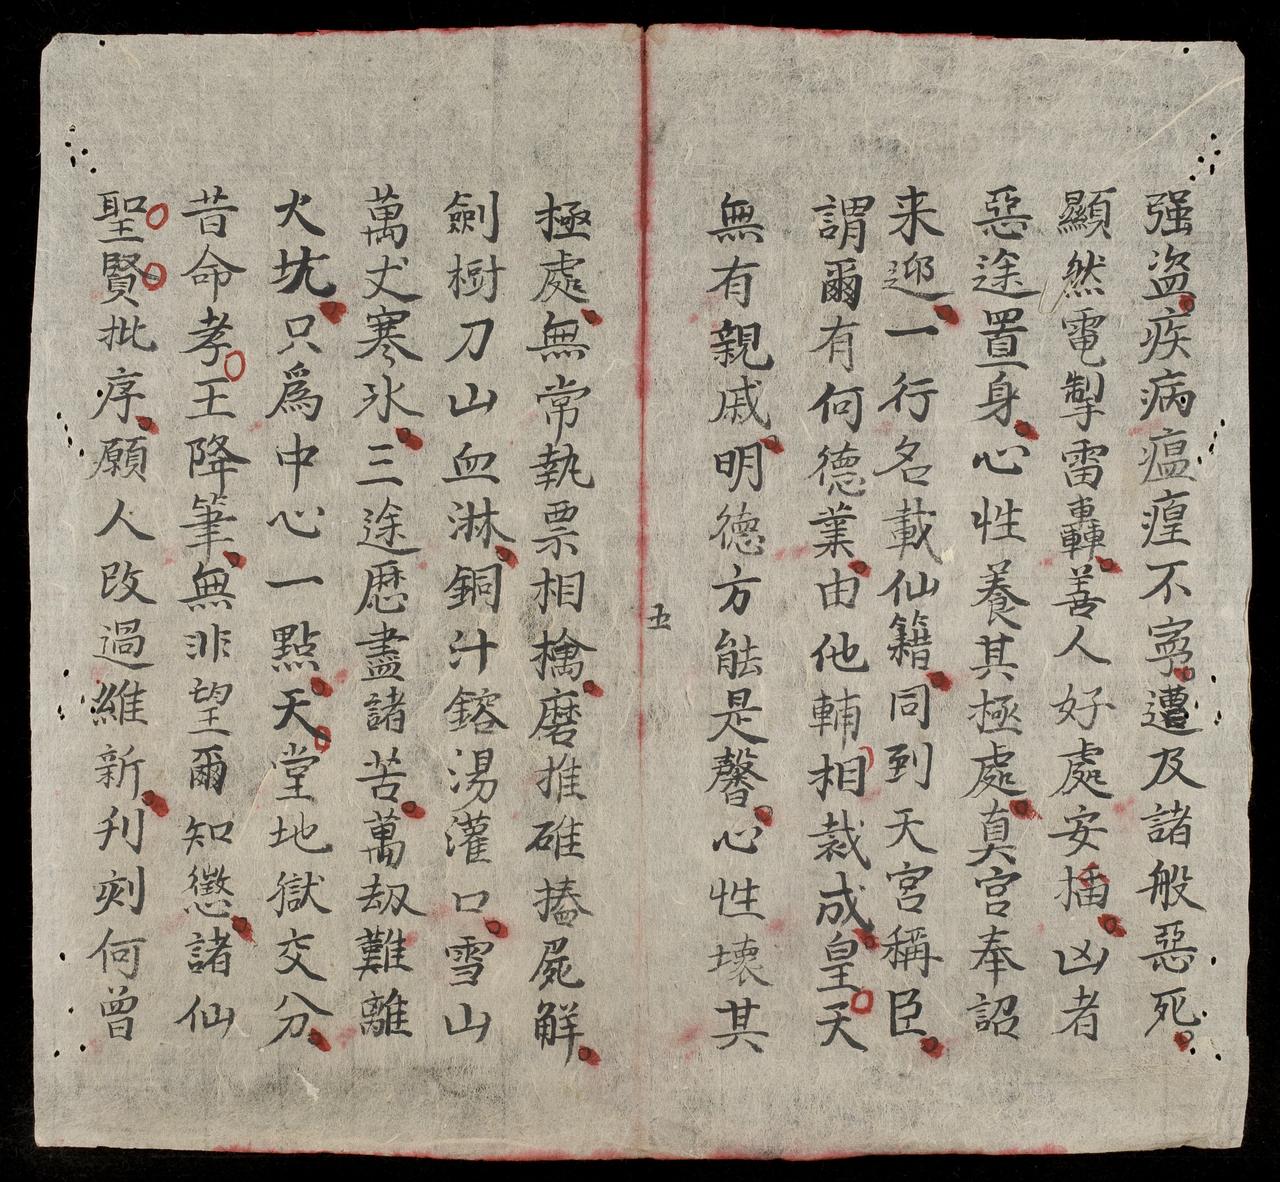 强盗疾病瘟瘟不寧遭及諸般惡死
顯然電掣雷轟善人好處安插凶者
惡途置身心性養其極處真宫奉詔
来迎一行名載仙籍同到天宫稱臣
謂爾有何德業由他輔相裁成皇天
無有親戚明德方能是馨心性壊其
五
極處無常執票相擒磨推碓搕屍解
劍樹刀山血淋銅汁鎔湯灌口雪山
萬丈寒氷三途歷盡諸苦萬劫難離
火坑只爲中心一點天堂地獄交分
昔命孝王降筆無非望爾知懲諸仙
聖賢批序願人改過維新刋刻何曾